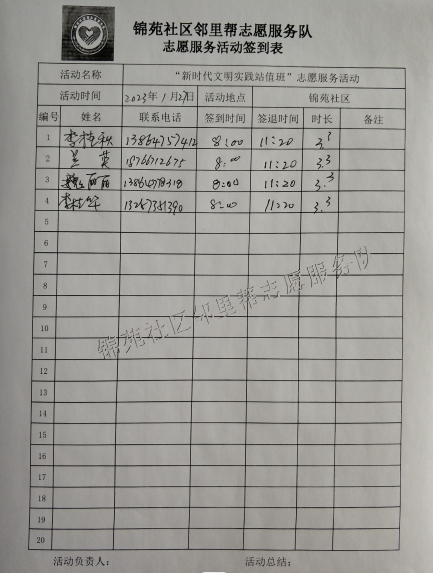 锦苑社区邻里帮志愿服务队
志愿服务活动签到表
活动名称 “新时代文明实践站值班”志愿服务活动
活动时间 2023年1月27日 活动地点 锦苑社区
编号 姓名 联系电话 签到时间 签退时间 时长 备注
1 李桂秋 13864757412 8:00 11:20 3.3
2 兰英 15766712675 8:00 11:20 3.3
3 魏丽丽 8:00 11:20 3.3
4 李桂华 13257351390 8:00 11:20 3.3
5
6
7
8
9
10
11
12
13
14
15
16
17
18
19
20
锦苑社区邻里帮志愿服务队
活动负责人: 活动总结: